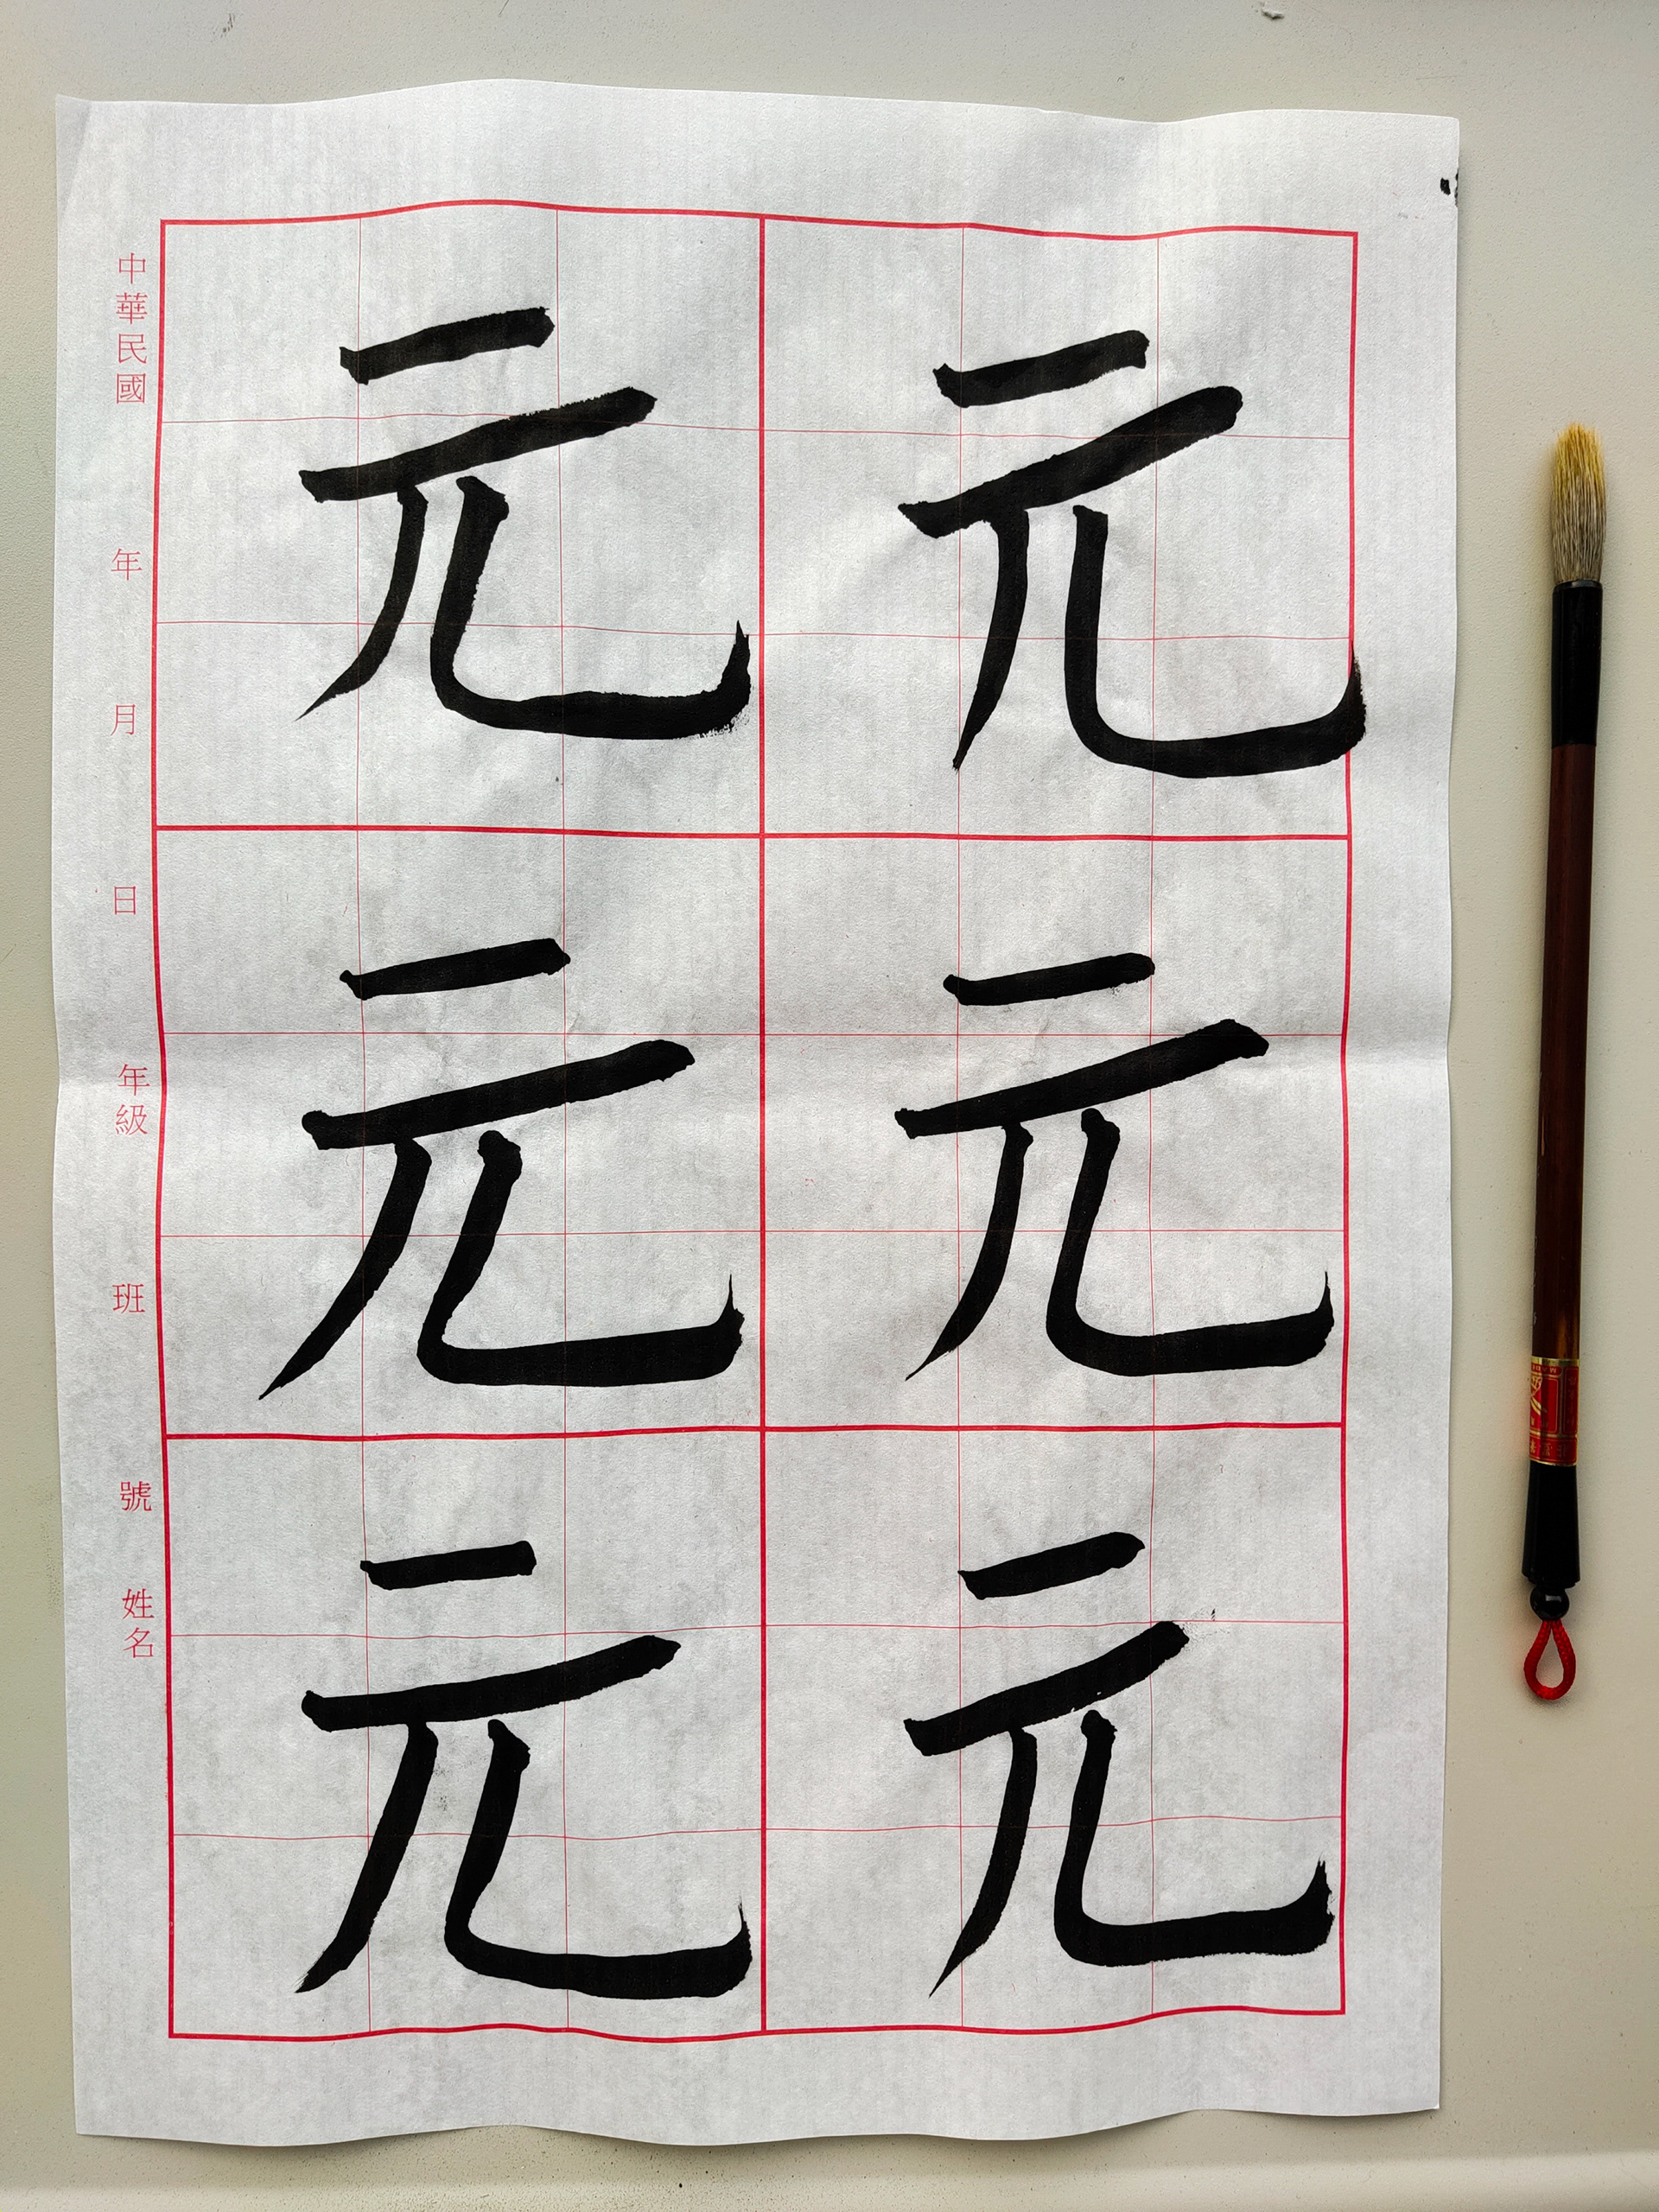 元
元
元
元
元
元
中華民國
年
月
日
年級
班
號
姓名